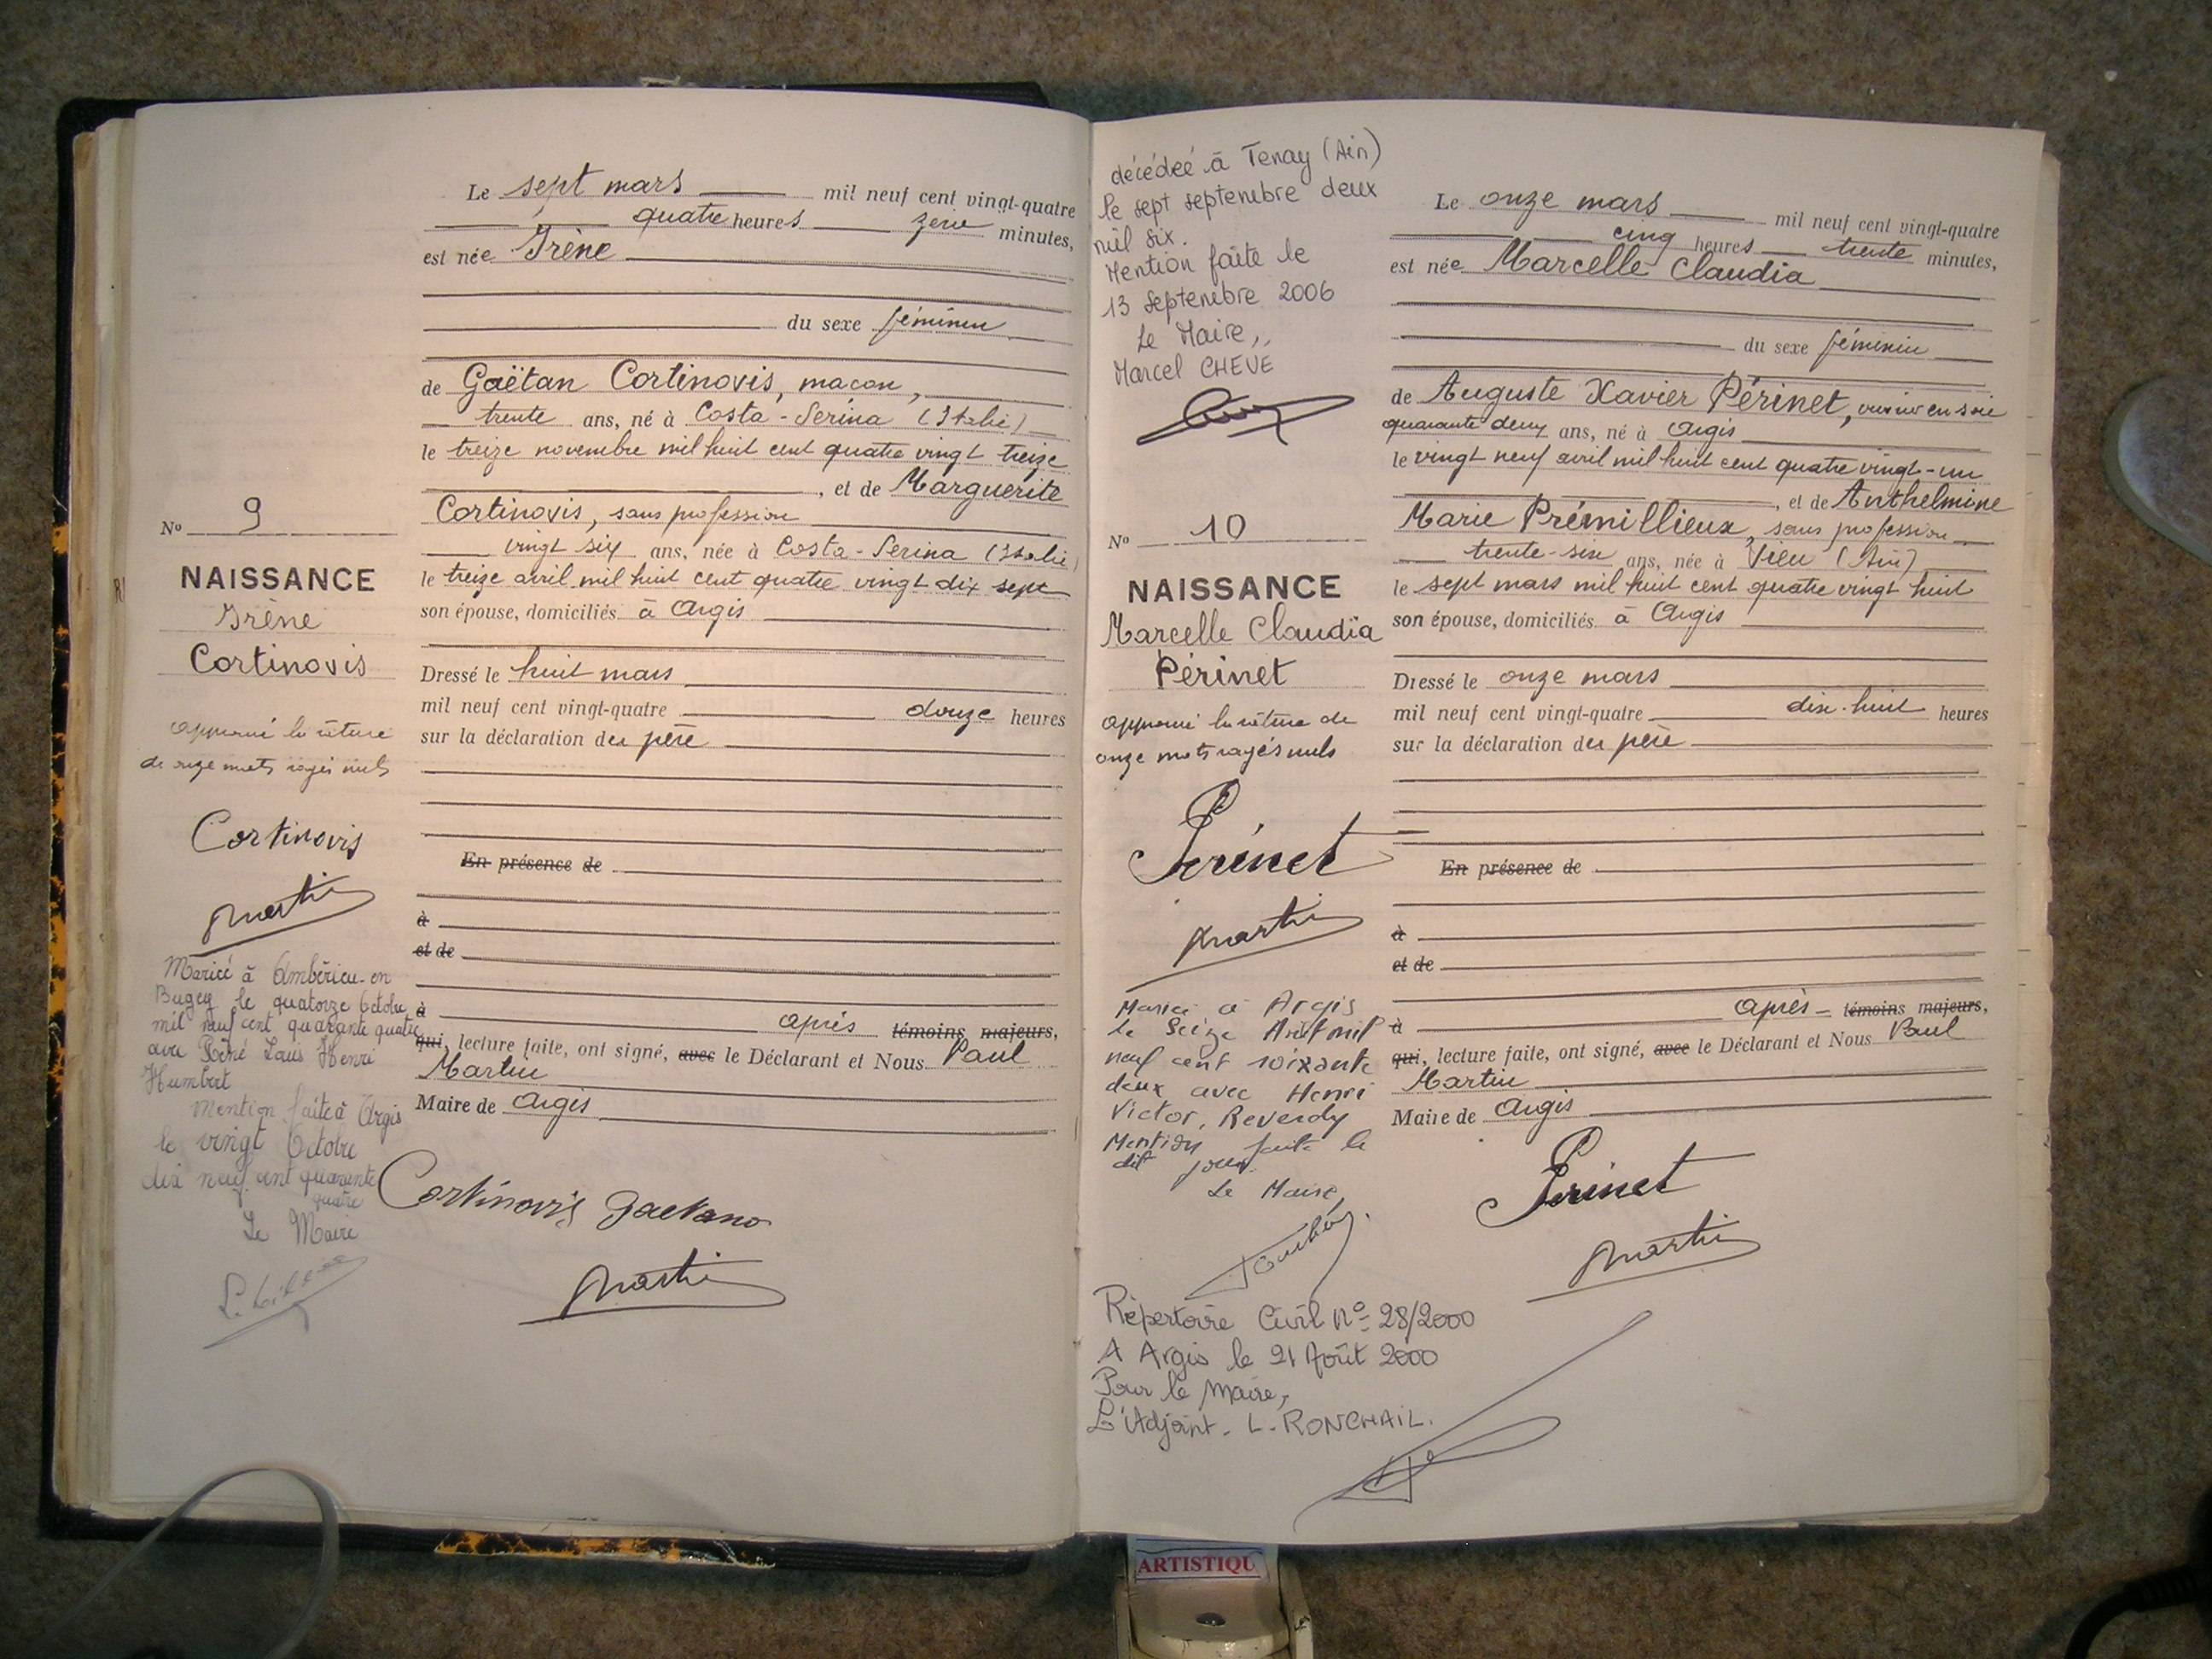 Le sept mars mil neuf cent vingt-quatre
quatre heures zéro minutes,
est née Irène
du sexe féminin
de Gaëtan Cortinovis, maçon,
trente ans, né à Costa-Serina (Italie)
le treize novembre mil huit cent quatre vingt treize
, et de Marguerite
Cortinovis, sans profession
vingt six ans, née à Costa-Serina (Italie)
le treize avril mil huit cent quatre vingt dix sept
son épouse, domiciliés à Argis
Dressé le huit mars
mil neuf cent vingt-quatre douze heures
sur la déclaration du père
En présence de
à
et de
à après témoins majeurs,
qui, lecture faite, ont signé, avec le Déclarant et Nous Paul
Martin
Maire de Argis
Cortinovis Gaetano
Martin
No 9
NAISSANCE
Irène
Cortinovis
approuvé la rature
de onze mots rayés nuls
Cortinovis
Martin
Mariée à Ambérieu-en
Bugey le quatorze Octobre
mil neuf cent quarante quatre
avec Louis Henri
Humbert
Mention faite à Argis
le vingt Octobre
dix neuf cent quarante
quatre
Le Maire
décédée à Tenay (Ain)
le sept septembre deux
mil six.
Mention faite le
13 septembre 2006
Le Maire,
Marcel CHEVE
No 10
NAISSANCE
Marcelle Claudia
Périnet
approuvé la rature de
onze mots rayés nuls
Périnet
Martin
Mariée à Argis
le Seize Août mil
neuf cent soixante
deux avec Henri
Victor, Reverdy
Mention faite le
dit jour
Le Maire,
Répertoire Civil No 28/2000
A Argis le 21 Août 2000
Pour le Maire,
L'Adjoint - L. RONCHAIL.
Le onze mars mil neuf cent vingt-quatre
cinq heures trente minutes,
est née Marcelle Claudia
du sexe féminin
de Auguste Xavier Périnet, ouvrier en soie
quarante deux ans, né à Argis
le vingt neuf avril mil huit cent quatre vingt-un
, et de Anthelmine
Marie Prémillieux, sans profession
trente-six ans, née à Vieu (Ain)
le sept mars mil huit cent quatre vingt huit
son épouse, domiciliés à Argis
Dressé le onze mars
mil neuf cent vingt-quatre dix-huit heures
sur la déclaration du père
En présence de
à
et de
à après témoins majeurs,
qui, lecture faite, ont signé, avec le Déclarant et Nous Paul
Martin
Maire de Argis
Périnet
Martin
ARTISTIQU